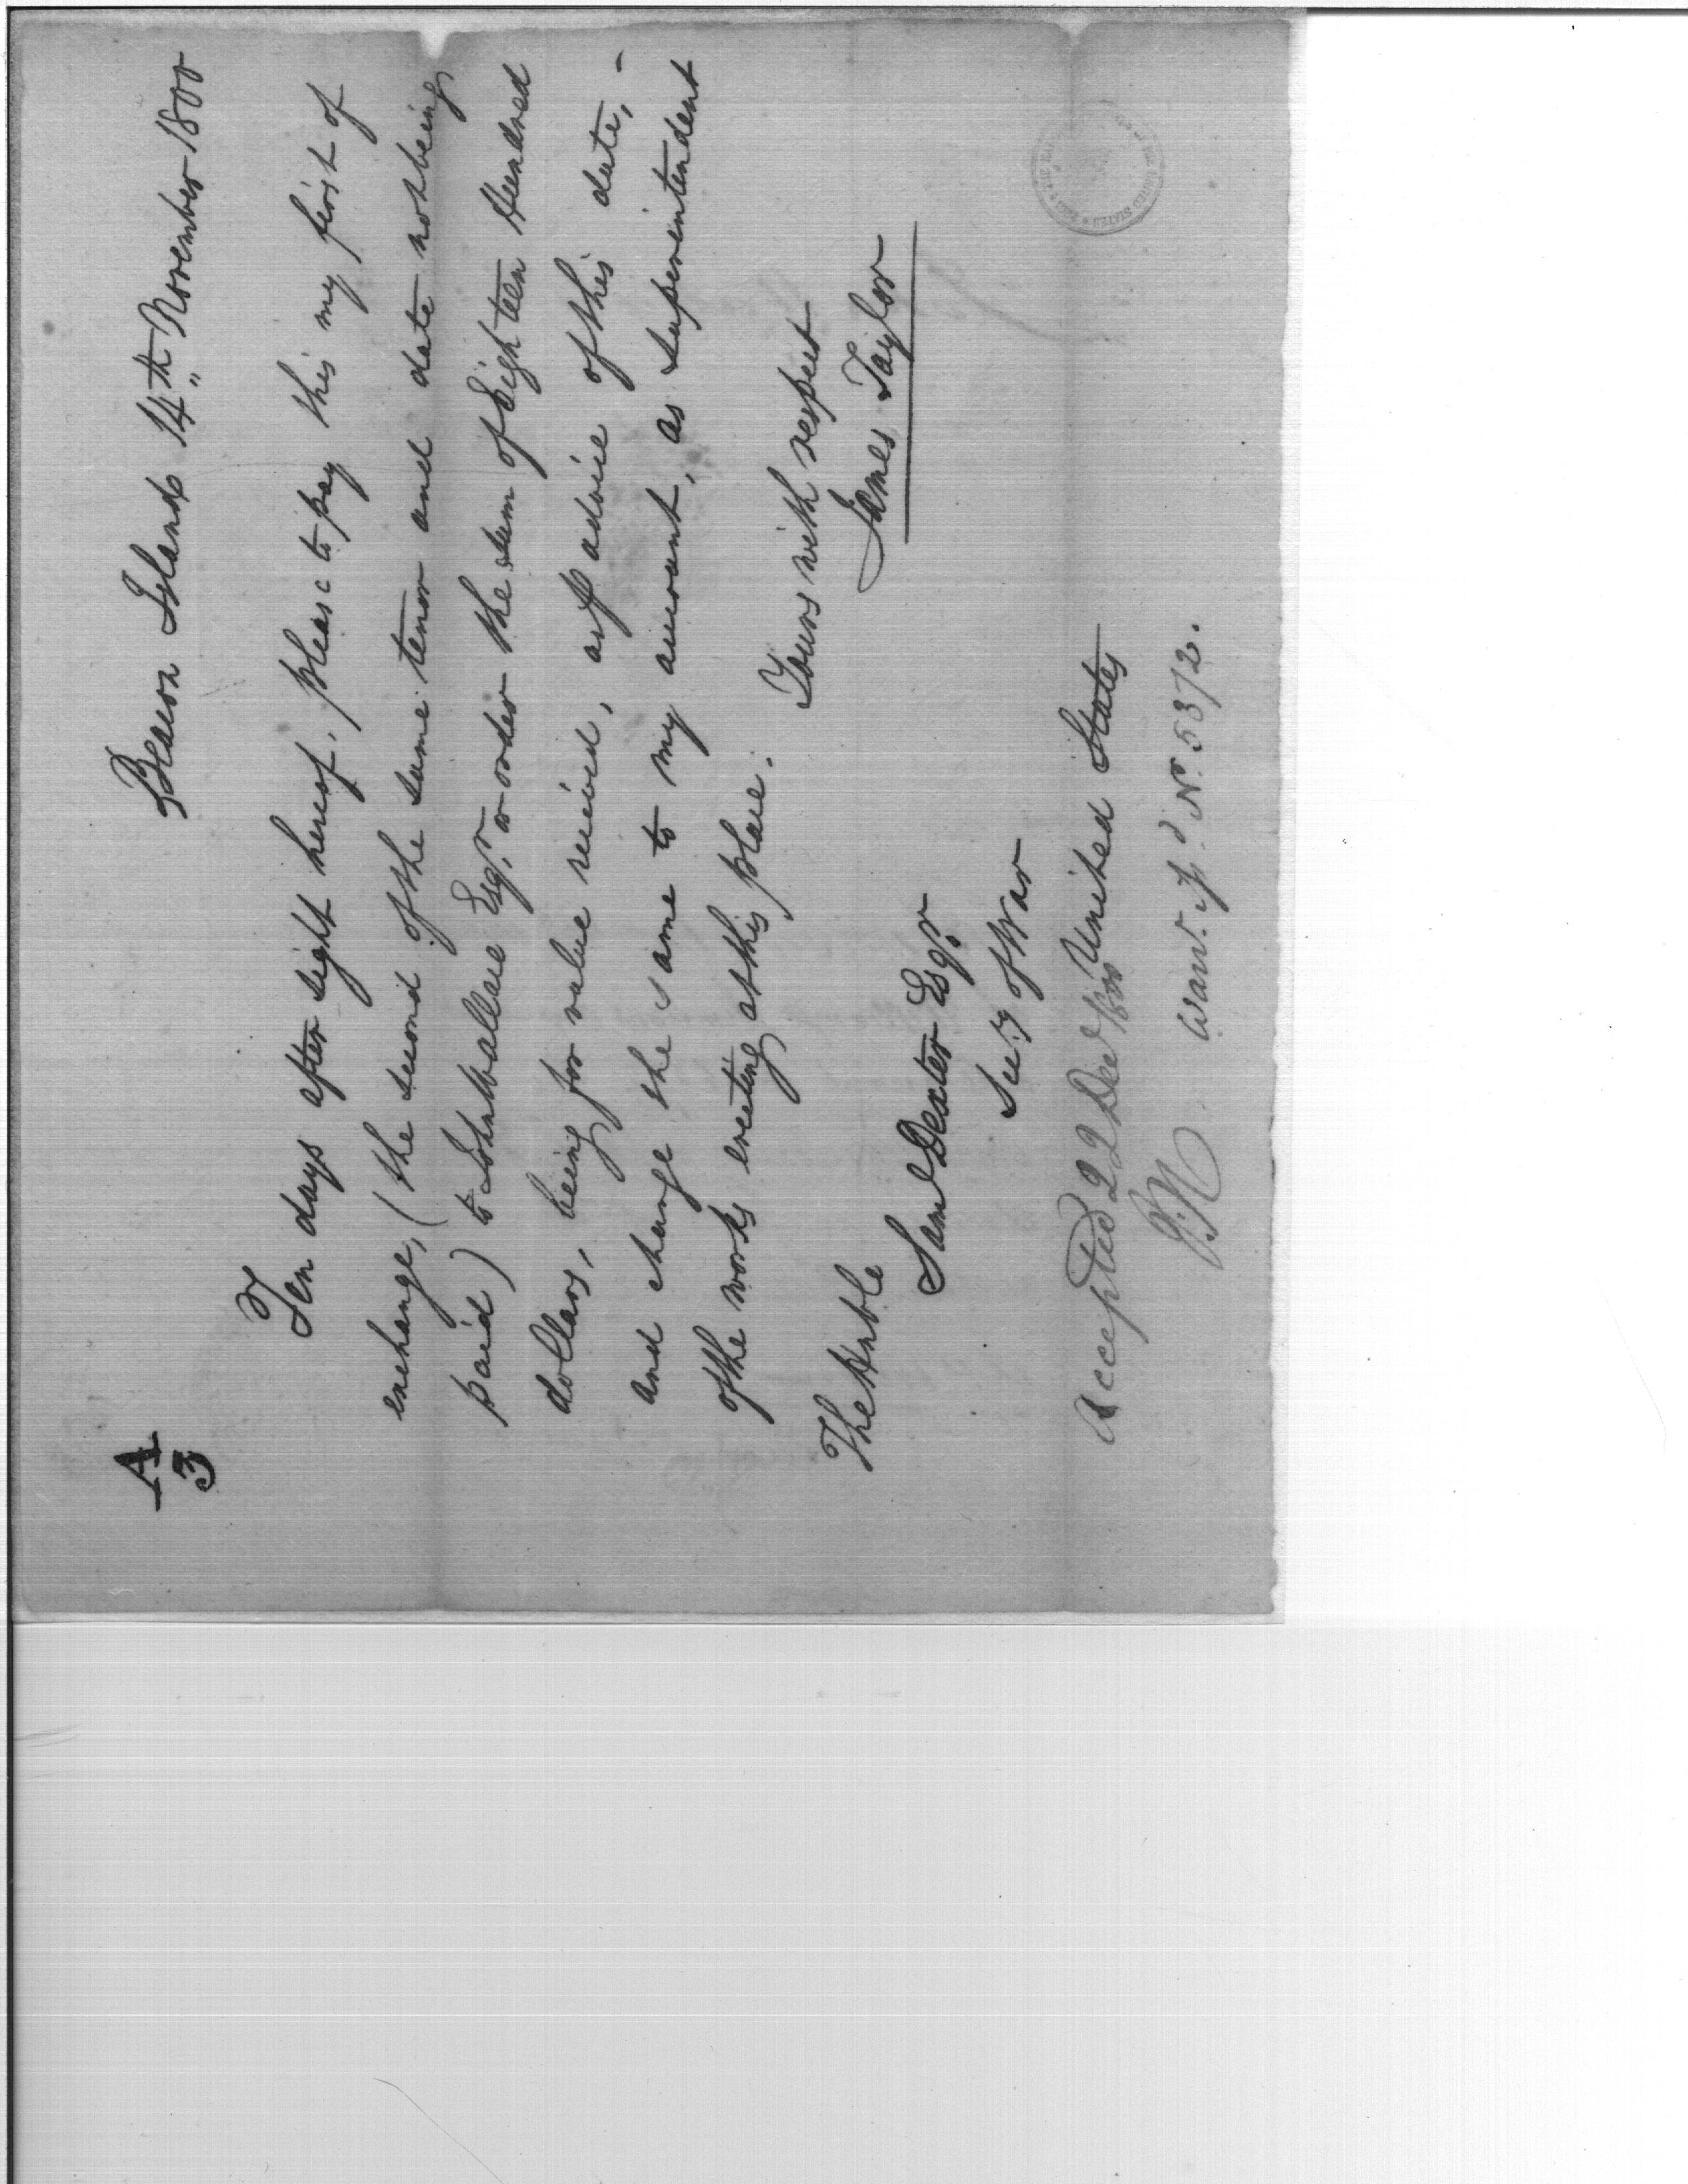 A
3
Beacon Island 14th November 1800
Ten days after sight hereof, please to pay this my first of
exchange, (the second of the same tenor and date not being
paid) to John Wallace Esqr. or order the sum of Eighteen Hundred
dollars, being for value received, as p advice of this date, -
and charge the same to my account, as Superintendent
of the works erecting at this place.
Yours with respect
James Taylor
The Honble
Saml Dexter Esqr.
Secy of War
Accepted 22 Decr for United States
Warrt. N. 5372.